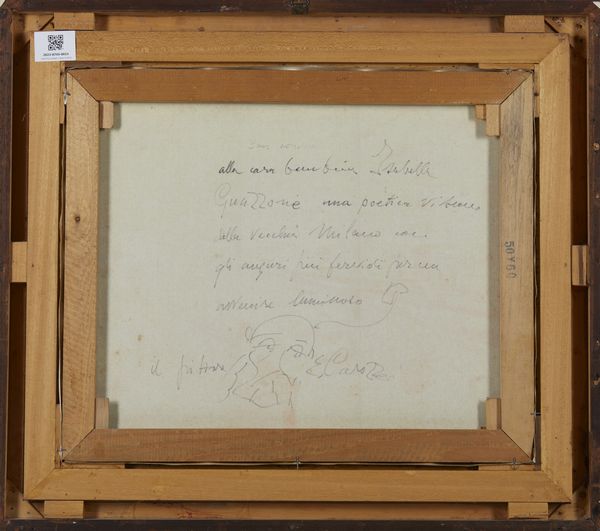 alla cara bambina Isabella
Guazzone una poetica visione
della vecchia Milano con
gli auguri più fervidi per un
avvenire luminoso
il pittore
50X60